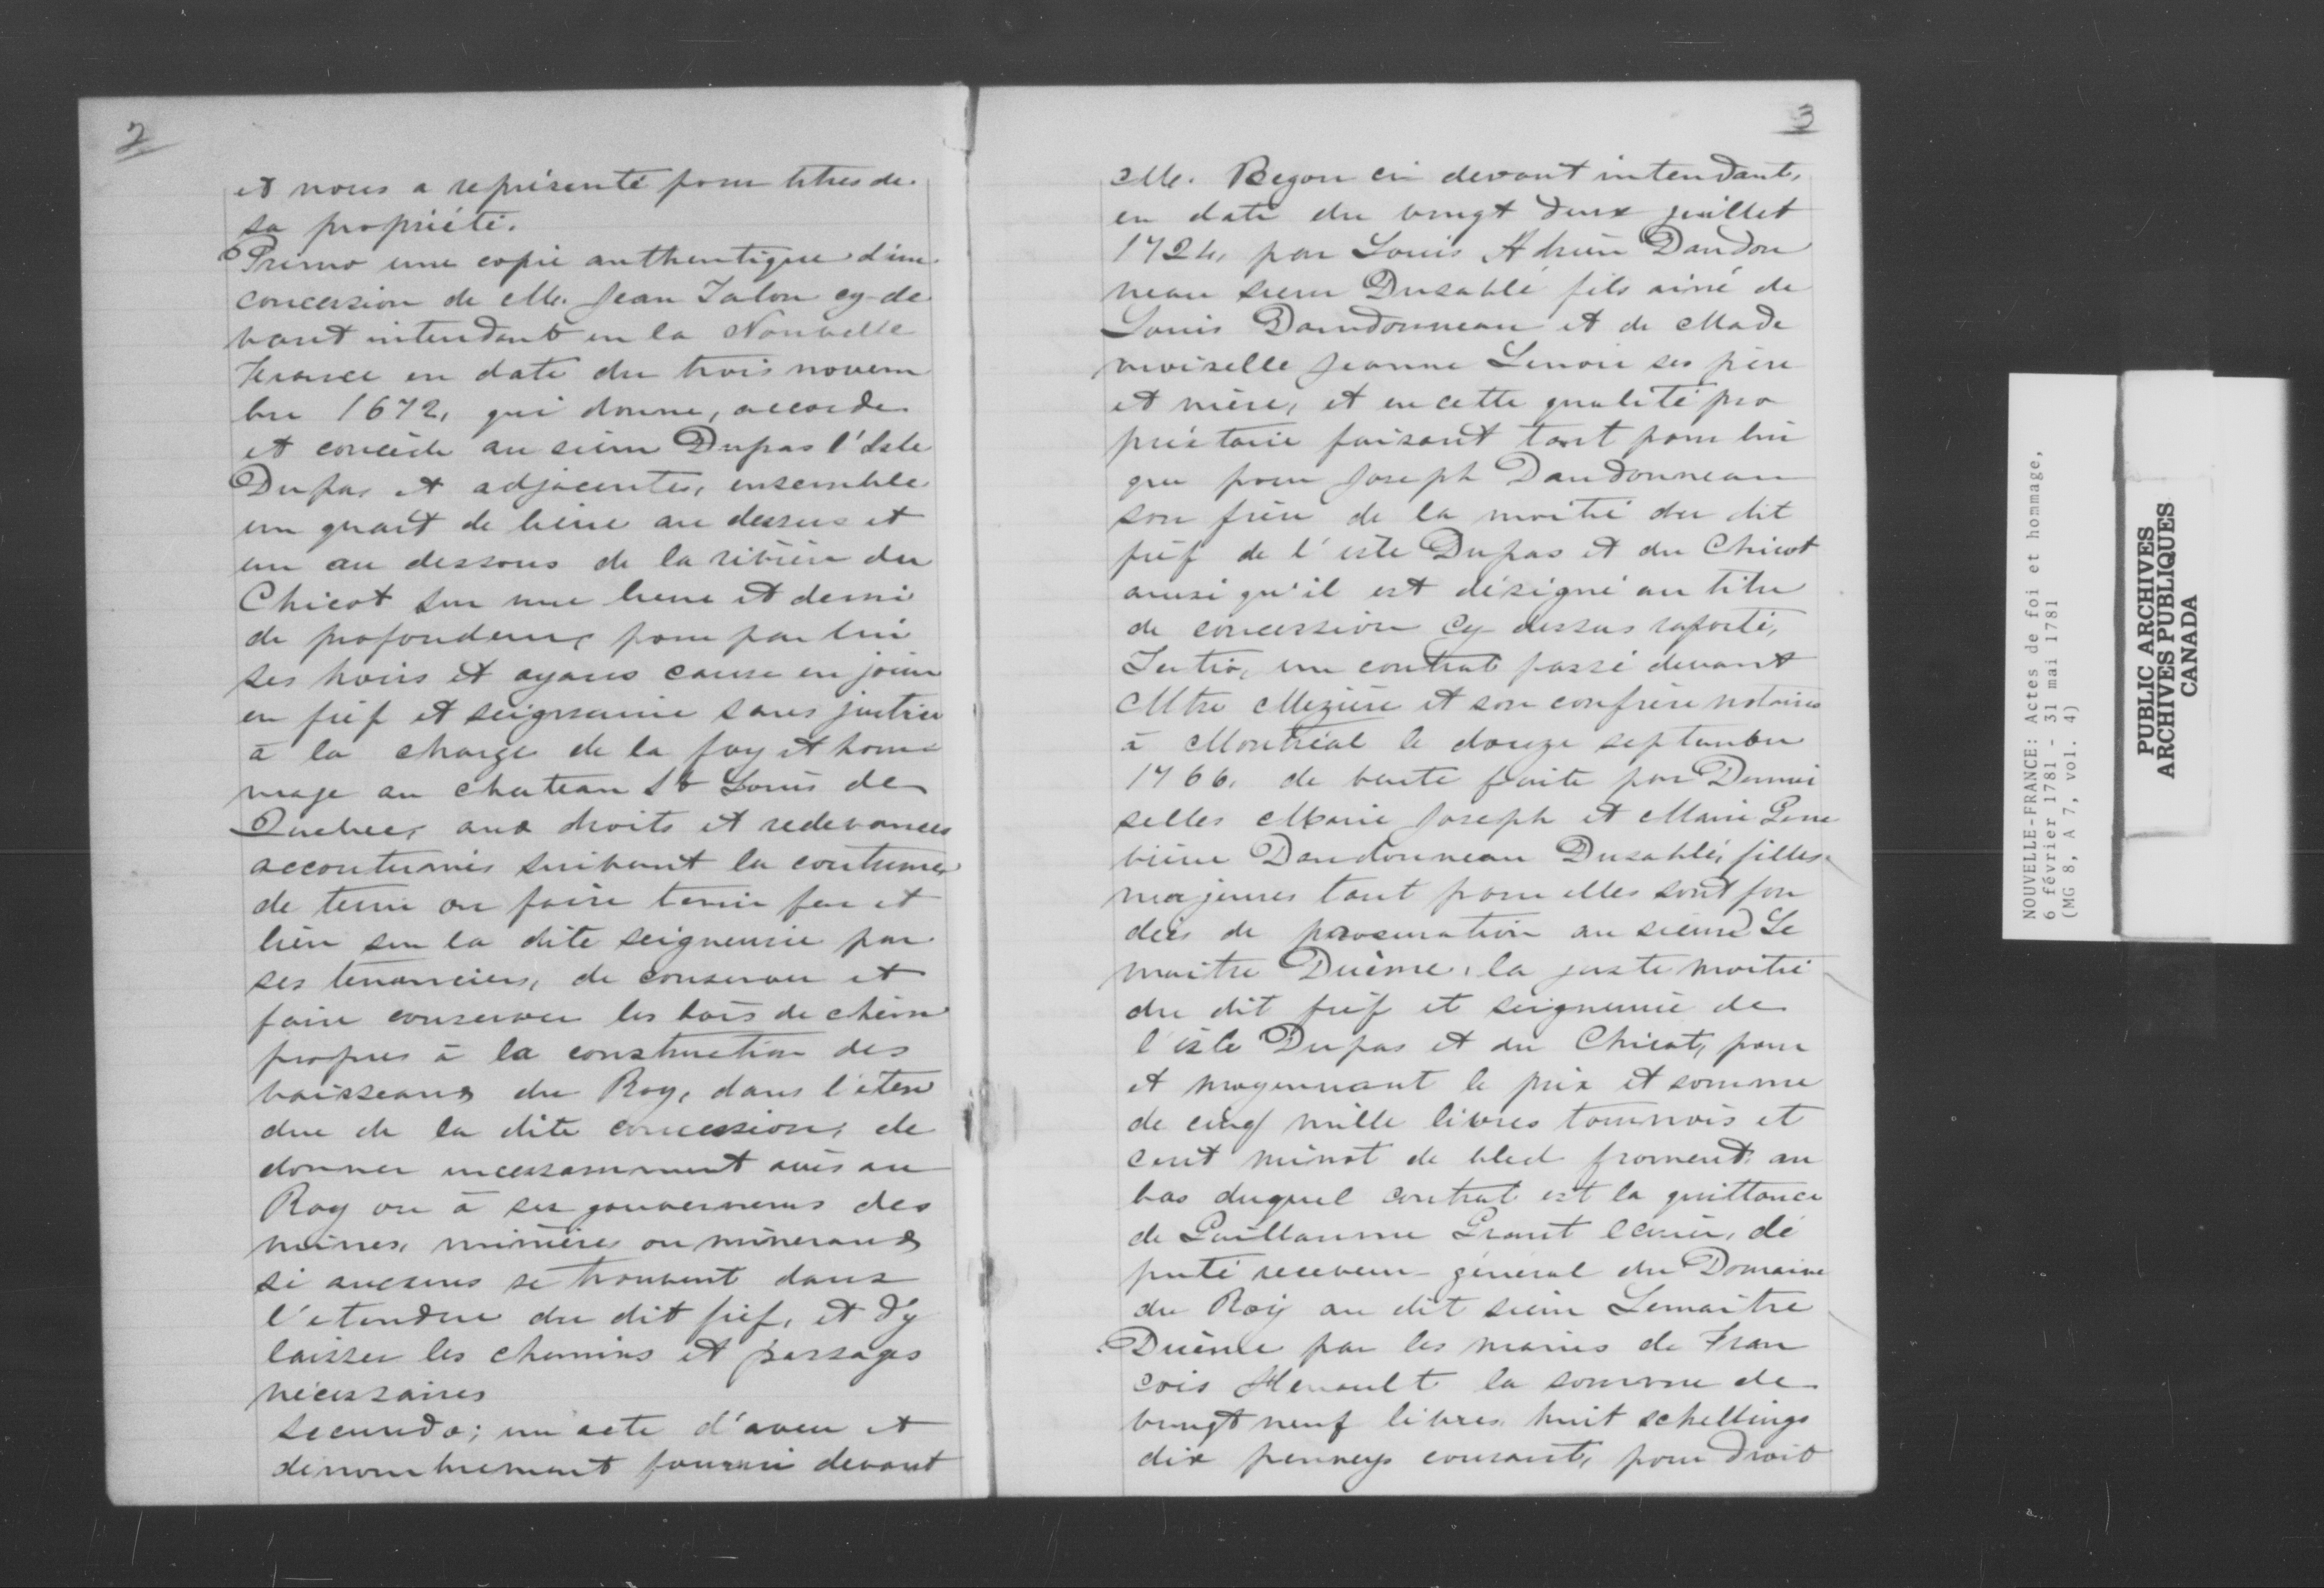 2
et nous a représenté pour titres de
sa propriété.
Primo une copie authentique d'une
concession de M. Jean Talon cy-de
vant intendant en la Nouvelle
France en date du trois novem
bre 1672, qui donne, accorde
et concède au sieur Dupas l'Isle
Dupas et adjacentes, ensemble
un quart de lieue au dessus et
un au dessous de la rivière du
Chicot sur une lieue et demi
de profondeur, pour par lui
ses hoirs et ayans cause en jouir
en fief et seigneurie sans justice
à la charge de la foy et hom
mage au chateau St Louis de
Quebec, aux droits et redevances
accoutumés suivant la coutume,
de tenir ou faire tenir feu et
lieu sur la dite seigneurie par
ses tenanciers, de conserver et
faire conserver les bois de chêne
propres à la construction des
vaisseaux du Roy, dans l'éten
due de la dite concession, de
donner incessamment avis au
Roy ou à ses gouverneurs des
mines, minières ou mineraux
si aucuns se trouvent dans
l'étendue du dit fief, et d'y
laisser les chemins et passages
nécessaires
Secundo; un acte d'aveu et
dénombrement fourni devant
3
M. Begon ci devant intendant,
en date du vingt deux juillet
1724, par Louis Adrien Dandon
neau sieur Dusablé fils ainé de
Louis Dandonneau et de Made
moiselle Jeanne Lenoir ses père
et mère, et en cette qualité pro
priétaire faisant tant pour lui
que pour Joseph Dandonneau
son frère de la moitié du dit
fief de l'isle Dupas et du Chicot
ainsi qu'il est désigné au titre
de concession cy dessus raporté,
Tertio, un contrat passé devant
Mtre Mezière et son confrère notaires
à Montréal le douze septembre
1766. de vente faite par Demoi
selles Marie Joseph et Marie Gene
viève Dandonneau Dusablé, filles
majeures tant pour elles sont fon
dées de procuration au sieur Le
maitre Duème, la juste moitié
du dit fief et seigneurie de
l'isle Dupas et du Chicot, pour
et moyennant le prix et somme
de cinq mille livres tournois et
cent minot de bled froment au
bas duquel contrat est la quittance
de Guillaume Grant ecuier, dé
puté receveur général du Domaine
du Roy au dit sieur Lemaitre
Duème par les mains de Fran
cois Henault la somme de
vingt neuf livres huit schellings
dix pennys courant, pour droit
NOUVELLE-FRANCE: Actes de foi et hommage,
6 février 1781 - 31 mai 1781
(MG 8, A 7, vol. 4)
PUBLIC ARCHIVES
ARCHIVES PUBLIQUES
CANADA